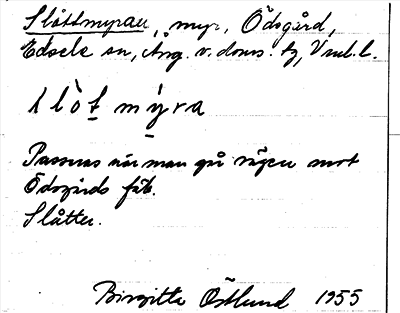 Slåttmyran, myr, Ödsgård,
Edsele sn, Ång. v. doms. tg, Vnl. l.
slòt mýra
Passeras när man går vägen mot
Ödsgårds fäb.
Slåtter.
Birgitta Östlund 1955